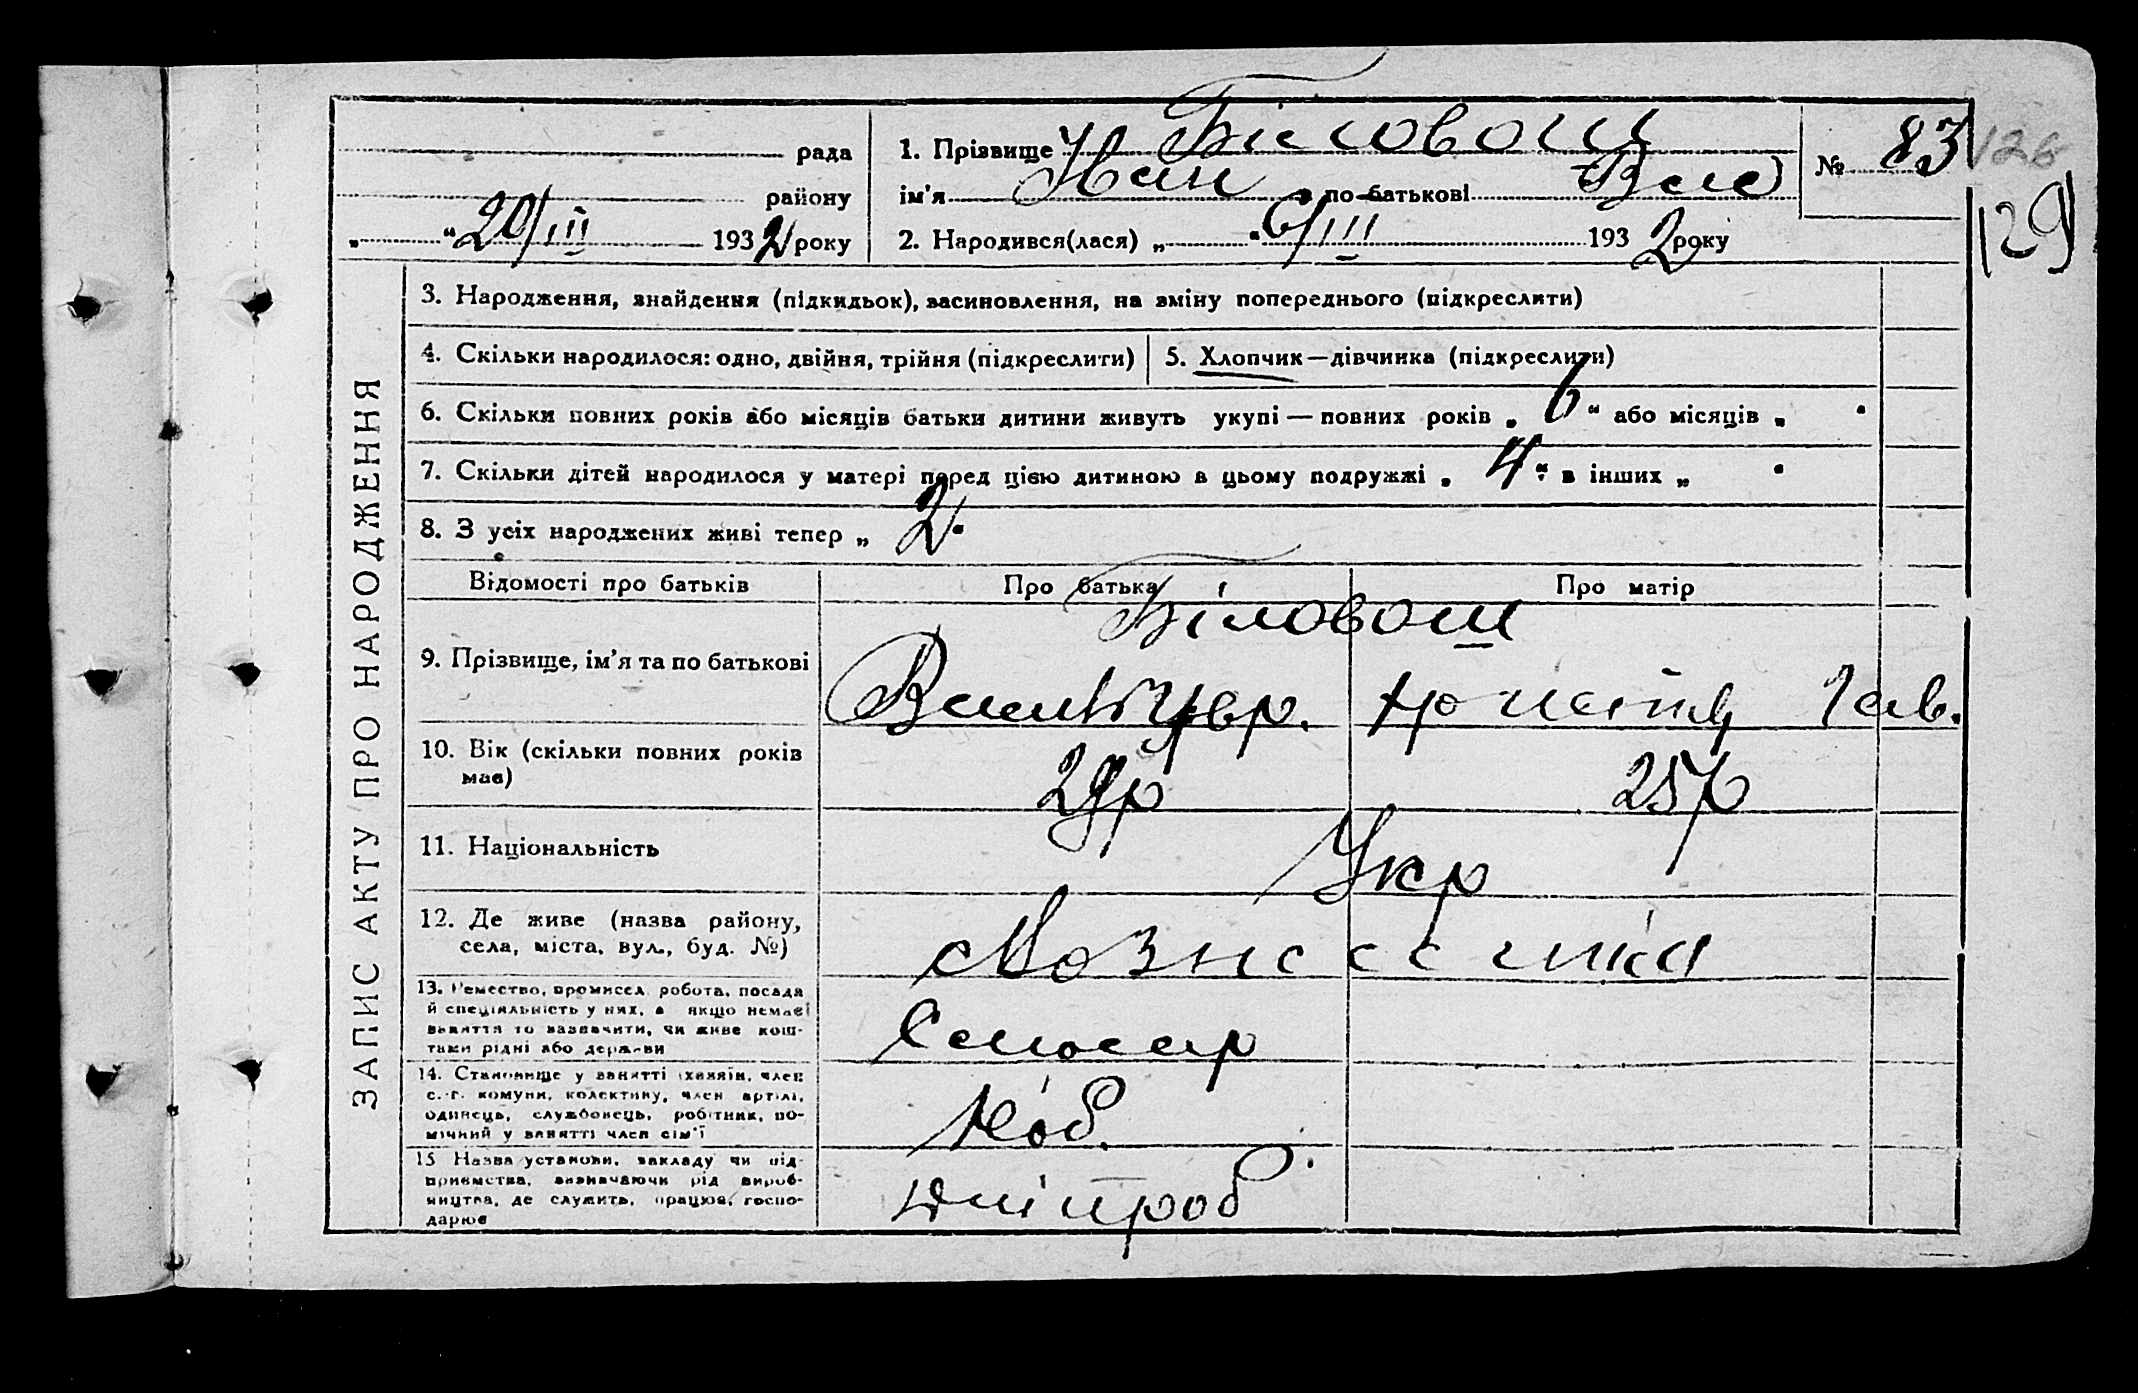 рада
району
„ “ 20/III 1932 року
1. Прізвище Біловол
ім'я Іван по-батькові Вас
2. Народився(лася) „ “ 6/III 1932 року
№ 83
126
129
ЗАПИС АКТУ ПРО НАРОДЖЕННЯ
3. Народження, знайдення (підкидьок), засиновлення, на зміну попереднього (підкреслити)
4. Скільки народилося: одно, двійня, трійня (підкреслити)
5. Хлопчик—дівчинка (підкреслити)
6. Скільки повних років або місяців батьки дитини живуть укупі — повних років „ 6 “ або місяців „
7. Скільки дітей народилося у матері перед цією дитиною в цьому подружжі „ 4 “ в інших „
8. З усіх народжених живі тепер „ 2
Відомості про батьків
Про батька
Про матір
9. Прізвище, ім'я та по батькові
Біловол
10. Вік (скільки повних років має)
29р
25р
11. Національність
Укр
12. Де живе (назва району,
села, міста, вул., буд. №)
13. Ремество, промисел, робота, посада
й спеціяльність у них, а якщо немає
заняття то зазначити, чи живе кош-
тами рідні або держави
Слюсар
14. Становище у занятті (хазяїн, член
с.-г. комуни, колективу, член артілі,
одинець, службовець, робітник, по-
мічний у занятті член сім'ї
Роб.
15 Назва установи, закладу чи під-
приємства, визначаючи рід вироб-
ництва, де служить, працює, госпо-
дарює
Дніпроб